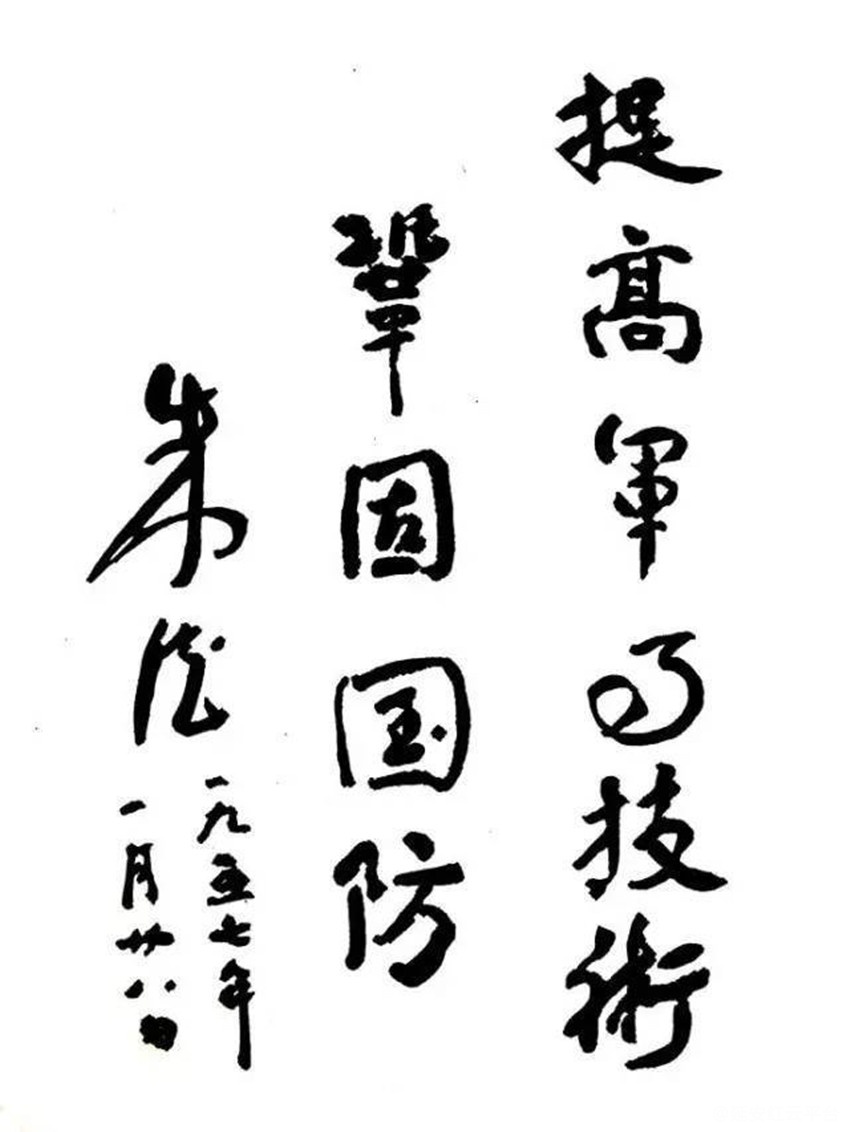 提高军的技術
巩固国防
朱德
一九五七年
一月廿八日